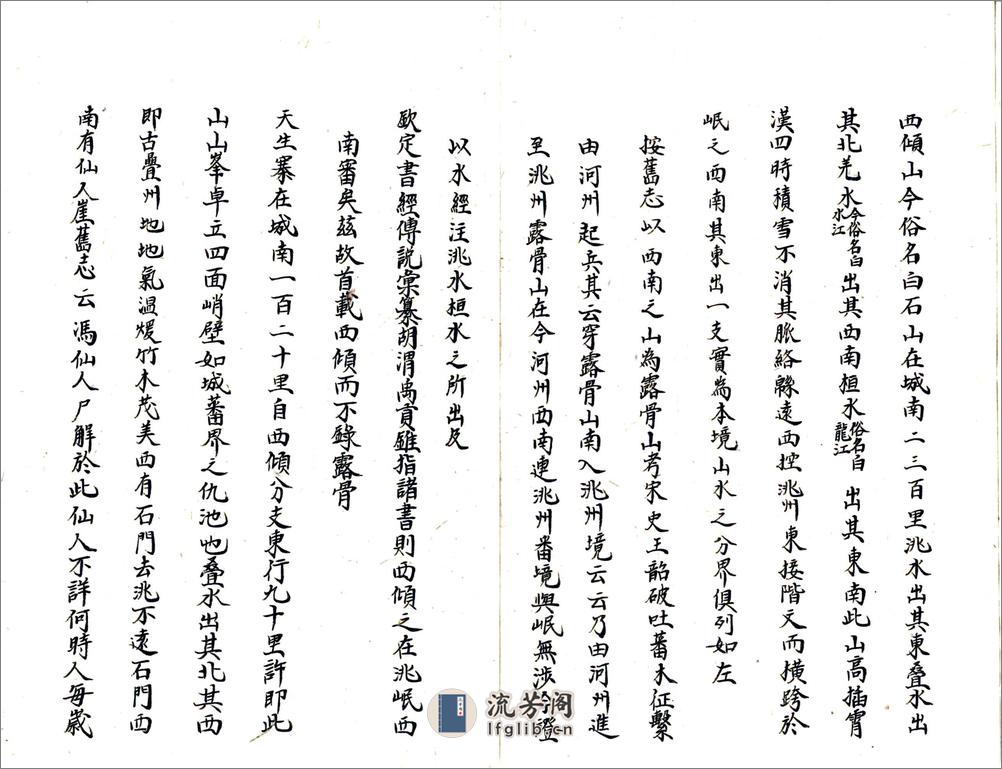 西傾山今俗名白石山在城南二三百里洮水出其東叠水出
其北羌水今俗名白水江出其西南桓水俗名白龍江出其東南此山高插霄
漢四時積雪不消其脈絡緜遠西控洮州東接階文而橫跨於
岷之西南其東出一支實為本境山水之分界俱列如左
按舊志以西南之山為露骨山考宋史王韶破吐蕃木征繫
由河州起兵其云穿露骨山南入洮州境云云乃由河州進
至洮州露骨山在今河州西南連洮州番境與岷無涉今證
以水經注洮水桓水之所出及
欽定書經傳說彙纂胡渭禹貢錐指諸書則西傾之在洮岷西
南審矣茲故首載西傾而不錄露骨
天生寨在城南一百二十里自西傾分支東行九十里許即此
山山峯卓立四面峭壁如城蕃界之仇池也叠水出其北其西
即古疊州地地氣溫煖竹木茂美西有石門去洮不遠石門西
南有仙人崖舊志云馮仙人尸解於此仙人不詳何時人每歲
流芳阁
lfglib.cn